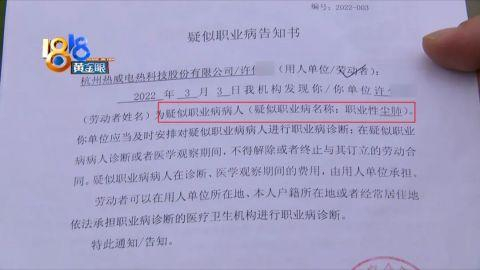 编号：2022-003
1818
黄金眼
疑似职业病告知书
杭州热威电热科技股份有限公司/许（用人单位/劳动者）
2022 年 3 月 3 日我机构发现你/你单位许
（劳动者姓名）为疑似职业病病人（疑似职业病名称：职业性尘肺）。
你单位应当及时安排对疑似职业病病人进行职业病诊断；在疑似职业
病病人诊断或者医学观察期间，不得解除或者终止与其订立的劳动合
同。疑似职业病病人在诊断、医学观察期间的费用，由用人单位承担。
劳动者可以在用人单位所在地、本人户籍所在地或者经常居住地
依法承担职业病诊断的医疗卫生机构进行职业病诊断。
特此通知/告知。